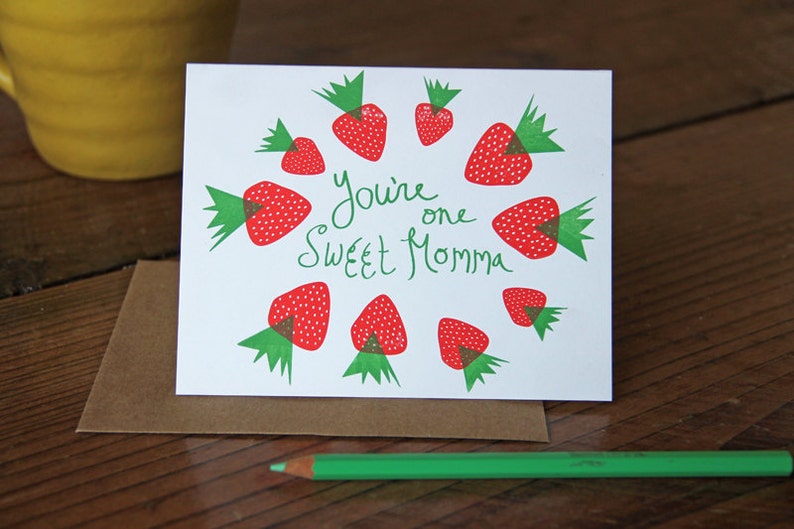 You're
one
Sweet Momma